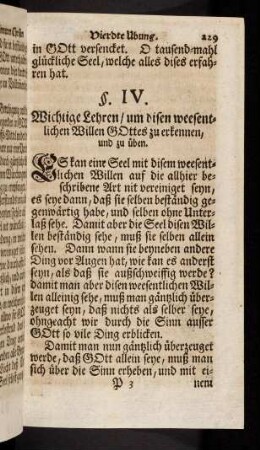 Vierdte Ubung. 229
in GOtt versencket. O tausend-mahl
glückliche Seel, welche alles dises erfah-
ren hat.
§. IV.
Wichtige Lehren / um disen weesent-
lichen Willen GOttes zu erkennen,
und zu üben.
ES kan eine Seel mit disem weesent-
lichen Willen auf die allhier be-
schribene Art nit vereiniget seyn,
es seye dann, daß sie selben beständig ge-
genwärtig habe, und selben ohne Unter-
laß sehe. Damit aber die Seel disen Wil-
len beständig sehe, muß sie selben allein
sehen. Dann wann sie beyneben andere
Ding vor Augen hat, wie kan es anderst
seyn, als daß sie außschweiffig werde?
damit man aber disen weesentlichen Wil-
len alleinig sehe, muß man gäntzlich über-
zeuget seyn, daß nichts als selber seye,
ohngeacht wir durch die Sinn ausser
GOtt so vile Ding erblicken.
Damit man nun gäntzlich überzeuget
werde, daß GOtt allein seye, muß man
sich über die Sinn erheben, und mit ei-
P 3 nem